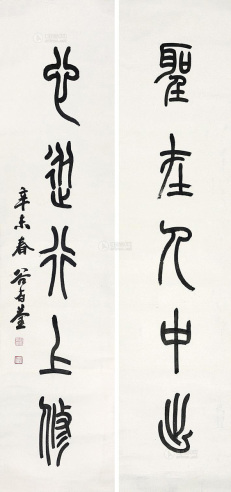 聖在人中出
心從行上修
辛未春 谷有荃